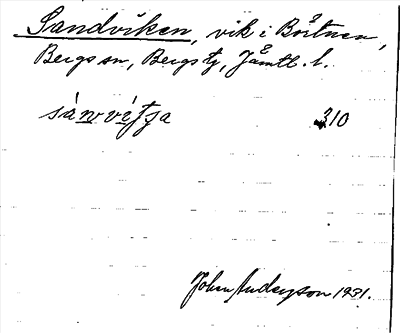 Sandviken, vik i Börtnen,
Bergs sn, Bergs tg, Jämtl. l.
sànvìtja 310
John Anderson 1931.